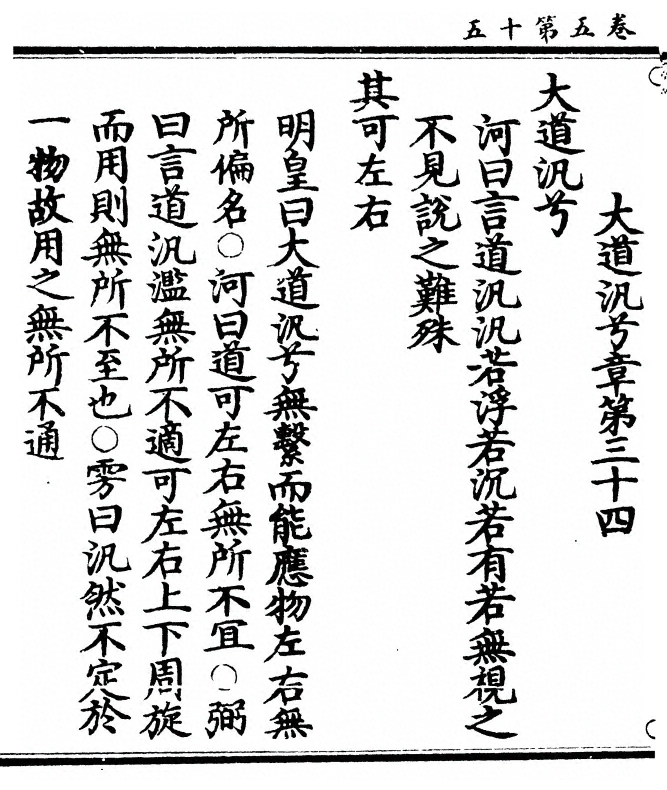 卷五第十五
大道汎兮章第三十四
大道汎兮
河曰言道汎汎若浮若沉若有若無視之
不見說之難殊
其可左右
明皇曰大道汎兮無繫而能應物左右無
所偏名○河曰道可左右無所不宜○弼
曰言道汎濫無所不適可左右上下周旋
而用則無所不至也○雱曰汎然不定於
一物故用之無所不通